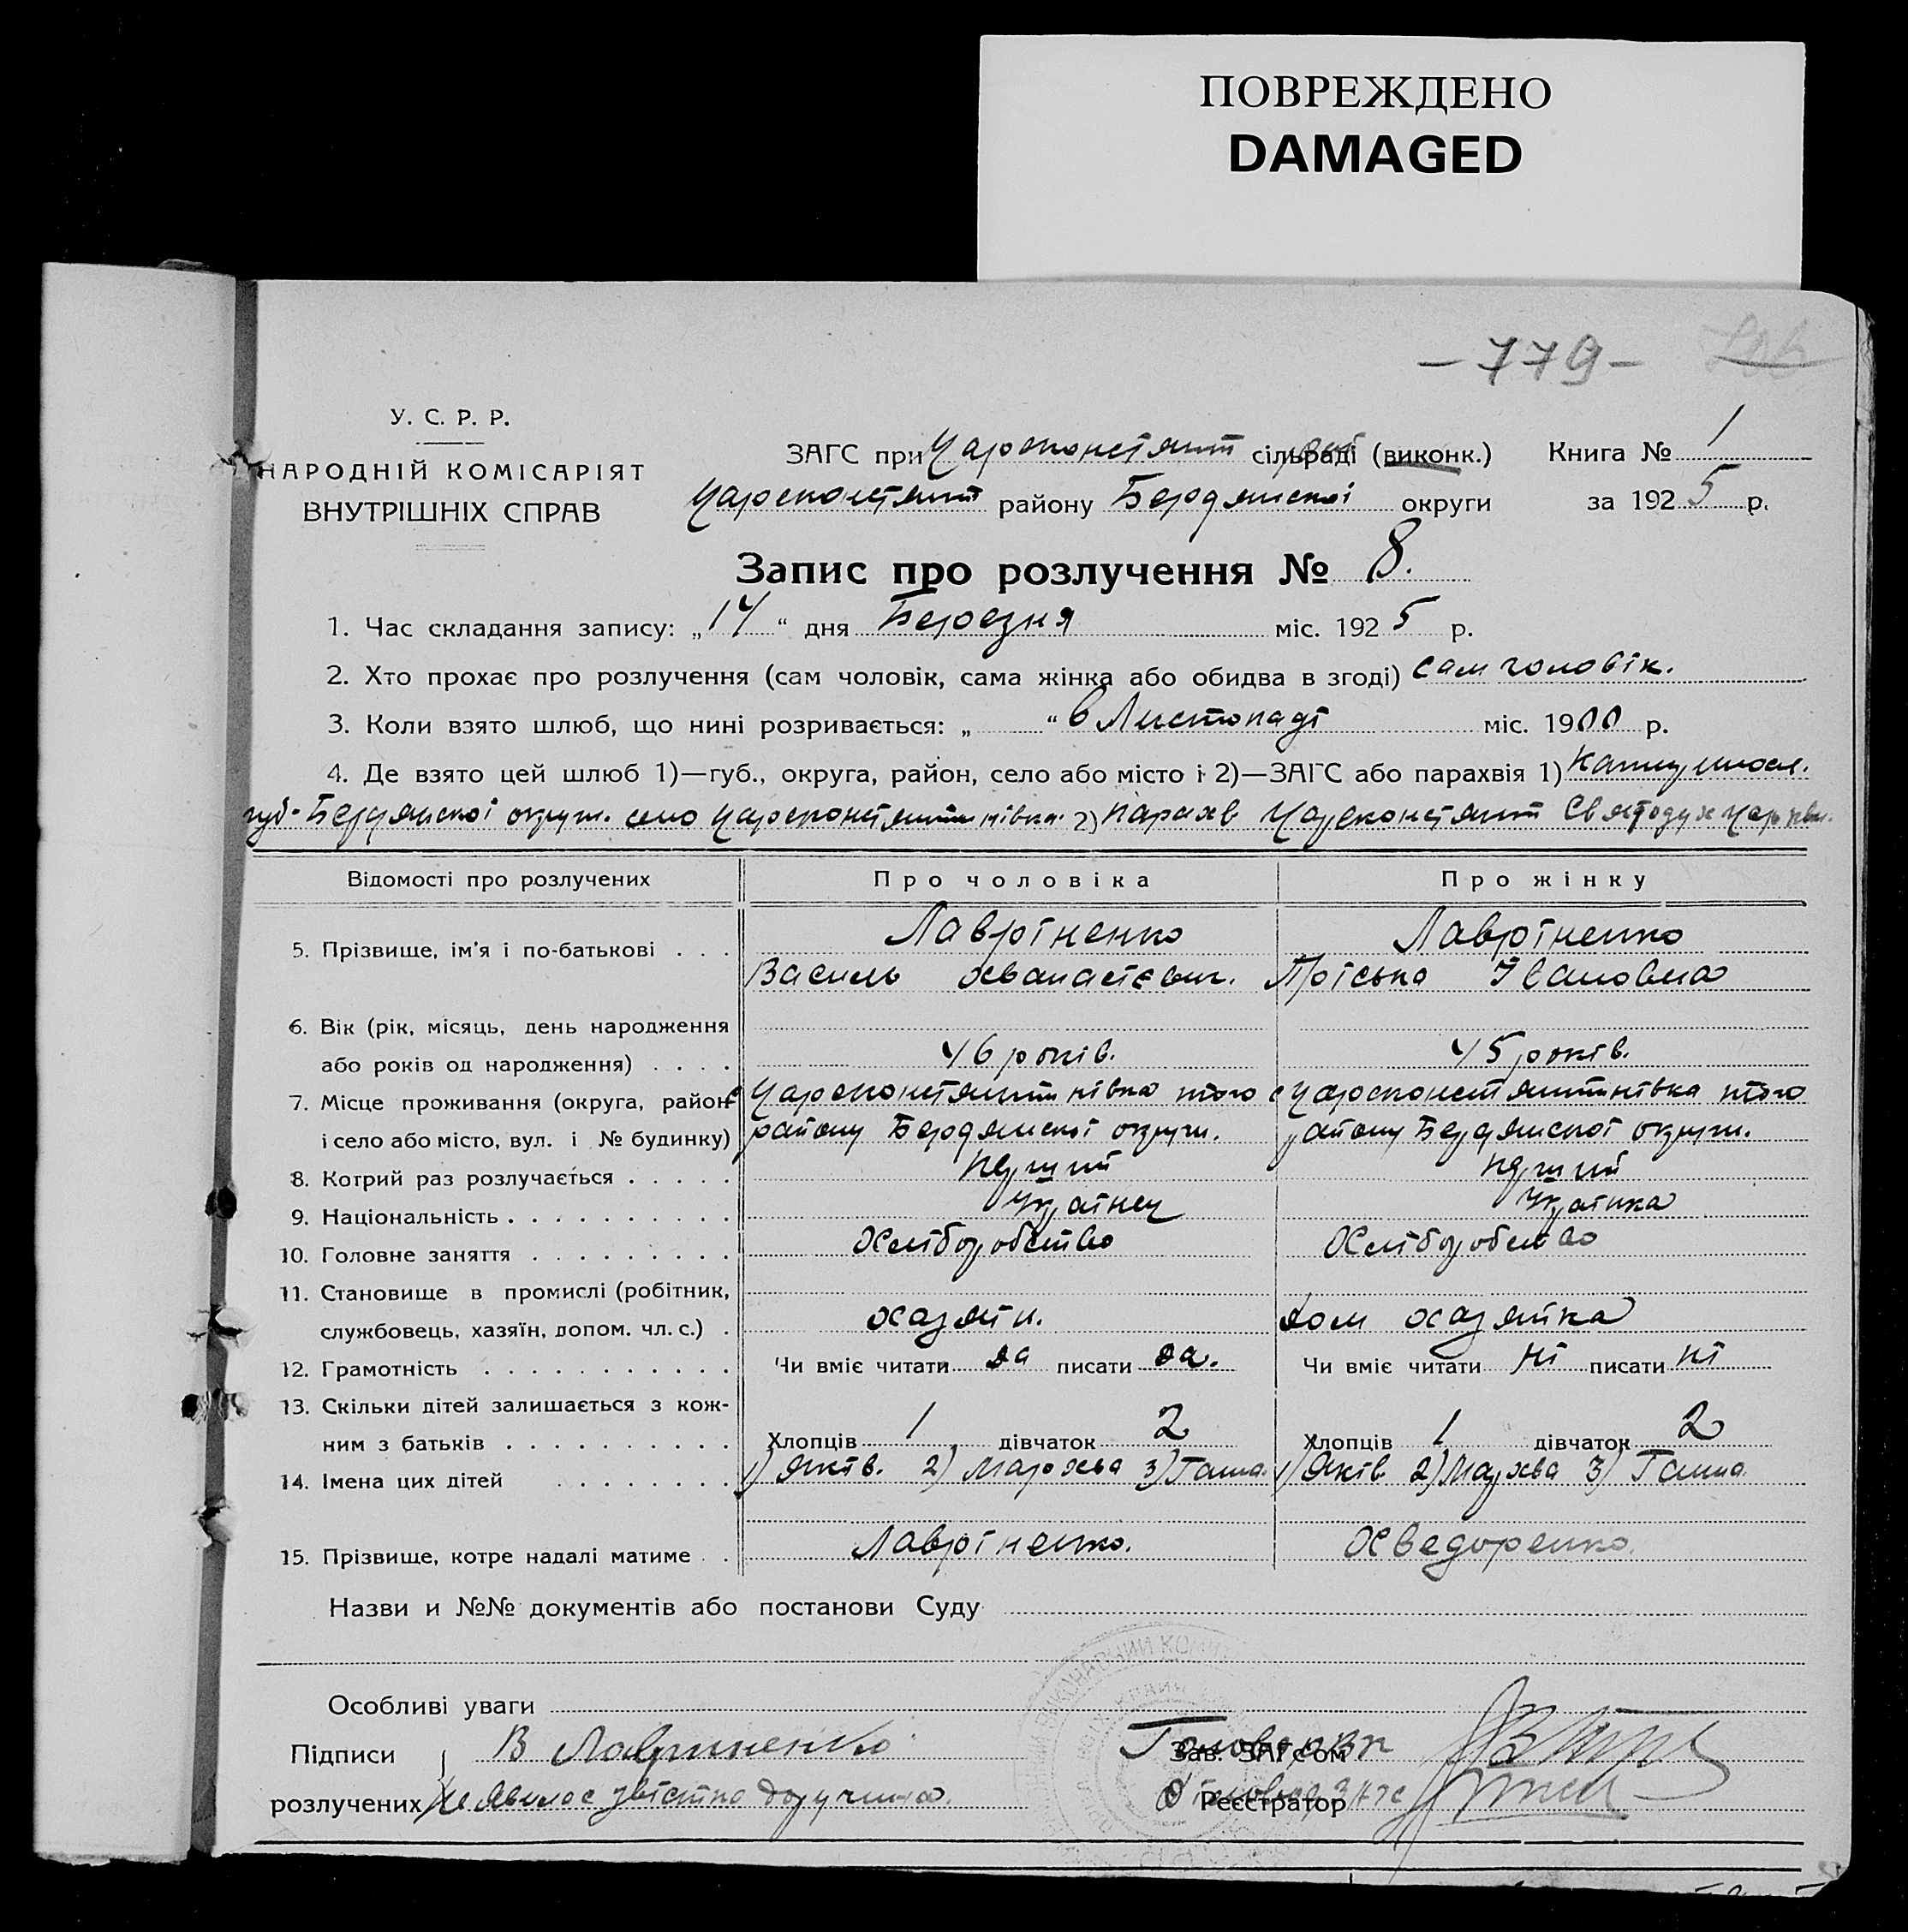 ПОВРЕЖДЕНО
DAMAGED
– 779 –
У. С. Р. Р.
НАРОДНІЙ КОМІСАРІЯТ
ВНУТРІШНІХ СПРАВ
ЗАГС при Царсконстянт сільраді (виконк.) Книга № 1
Царсконстянт району Бердянської округи за 1925 р.
Запис про розлучення № 8.
1. Час складання запису: „14“ дня Березня міс. 1925 р.
2. Хто прохає про розлучення (сам чоловік, сама жінка або обидва в згоді) сам чоловік.
3. Коли взято шлюб, що нині розривається: „ “ в Листопаді міс. 1900 р.
4. Де взято цей шлюб 1)—губ., округа, район, село або місто і 2)—ЗАГС або парахвія 1)
губ. Бердянської округи. село Царсконстянтинівка. 2) Парахв Царсконстянт Святодух Церкви.
Відомості про розлучених Про чоловіка Про жінку
5. Прізвище, ім'я і по-батькові . . . Лавріненко Лавріненко
Василь Хванастєвич. Пріська Івановна
6. Вік (рік, місяць, день народження
або років од народження) . . . . 46 років. 45 років.
7. Місце проживання (округа, район с Царсконстянтинівка того с Царсконстянтинівка того
і село або місто, вул. і № будинку) району Бердянської округи. району Бердянської округи.
8. Котрий раз розлучається . . . . . перший перший
9. Національність . . . . . . . . . . Українец Українка
10. Головне заняття . . . . . . . . . Хліборобство Хліборобство
11. Становище в промислі (робітник,
службовець, хазяїн, допом. чл. с.) . хазяїн. дом хазяйка
12. Грамотність . . . . . . . . . . . Чи вміє читати да писати да. Чи вміє читати ні писати ні
13. Скільки дітей залишається з кож-
ним з батьків . . . . . . . . . . Хлопців 1 дівчаток 2 Хлопців 1 дівчаток 2
14. Імена цих дітей . . . . . . . 1) Яків. 2) Марохва 3) Ганна. 1) Яків 2) Мархва 3) Ганна.
15. Прізвище, котре надалі матиме . . Лавріненко. Хведоренко.
Назви и №№ документів або постанови Суду
Особливі уваги
Підписи В Лавриненко Зав. ЗАГС'ом
розлучених не явилас звістка доручина. Реєстратор